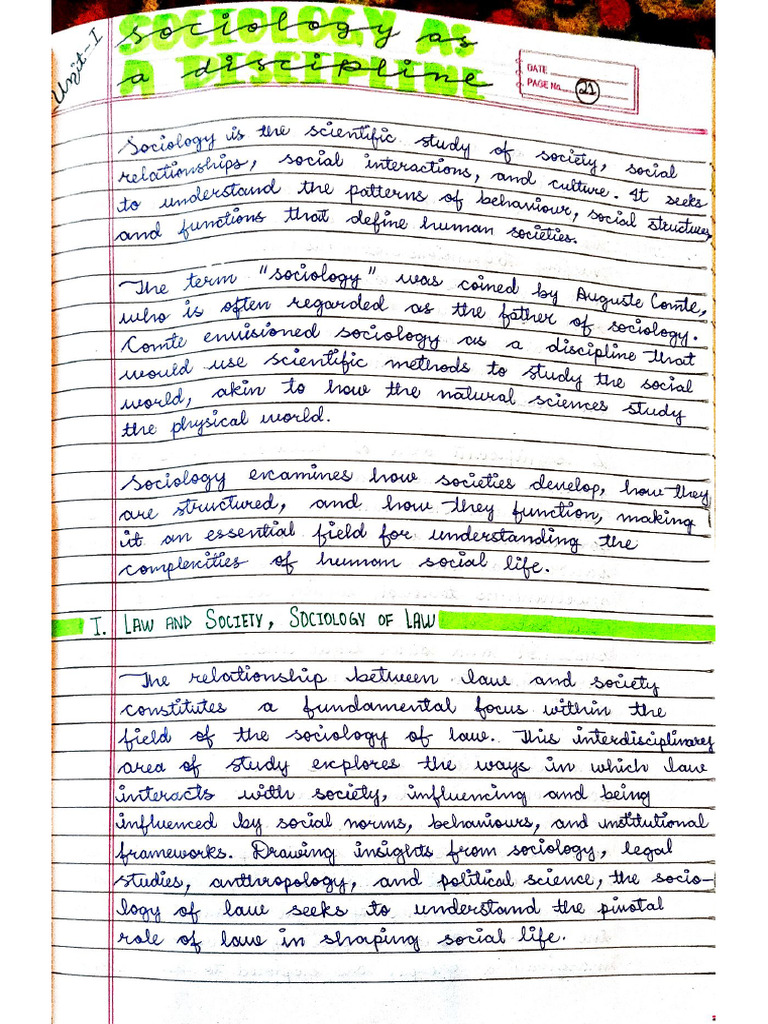 Unit-I
Sociology as
a discipline
DATE
PAGE No. 21
Sociology is the scientific study of society, social
relationships, social interactions, and culture. It seeks
to understand the patterns of behaviour, social structures,
and functions that define human societies.
The term "sociology" was coined by Auguste Comte,
who is often regarded as the father of sociology.
Comte envisioned sociology as a discipline that
would use scientific methods to study the social
world, akin to how the natural sciences study
the physical world.
Sociology examines how societies develop, how they
are structured, and how they function, making
it an essential field for understanding the
complexities of human social life.
I. LAW AND SOCIETY, SOCIOLOGY OF LAW
The relationship between law and society
constitutes a fundamental focus within the
field of the sociology of law. This interdisciplinary
area of study explores the ways in which law
interacts with society, influencing and being
influenced by social norms, behaviours, and institutional
frameworks. Drawing insights from sociology, legal
studies, anthropology, and political science, the socio-
logy of law seeks to understand the pivotal
role of law in shaping social life.